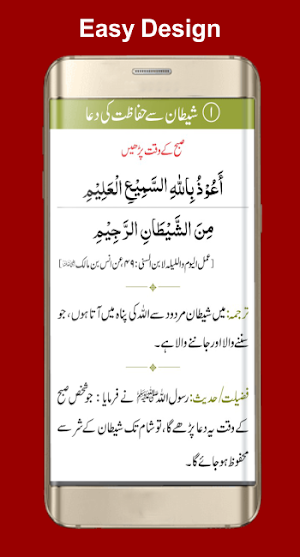 Easy Design
۱ شیطان سے حفاظت کی دعا
صبح کے وقت پڑھیں
أَعُوْذُ بِاللهِ السَّمِيْعِ الْعَلِيْمِ
مِنَ الشَّيْطَانِ الرَّجِيْمِ
[عمل الیوم واللیلہ لابن السنی: ۴۹، عن انس بن مالک ؓ]
ترجمہ: میں شیطان مردود سے اللہ کی پناہ میں آتا ہوں، جو
سننے والا اور جاننے والا ہے۔
فضیلت/حدیث: رسول اللہ ﷺ نے فرمایا: جو شخص صبح
کے وقت یہ دعا پڑھے گا، تو شام تک شیطان کے شر سے
محفوظ ہو جائے گا۔